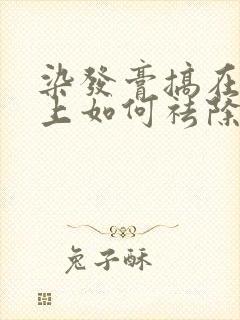 染發膏搞在
上如何祛除
兔子酥